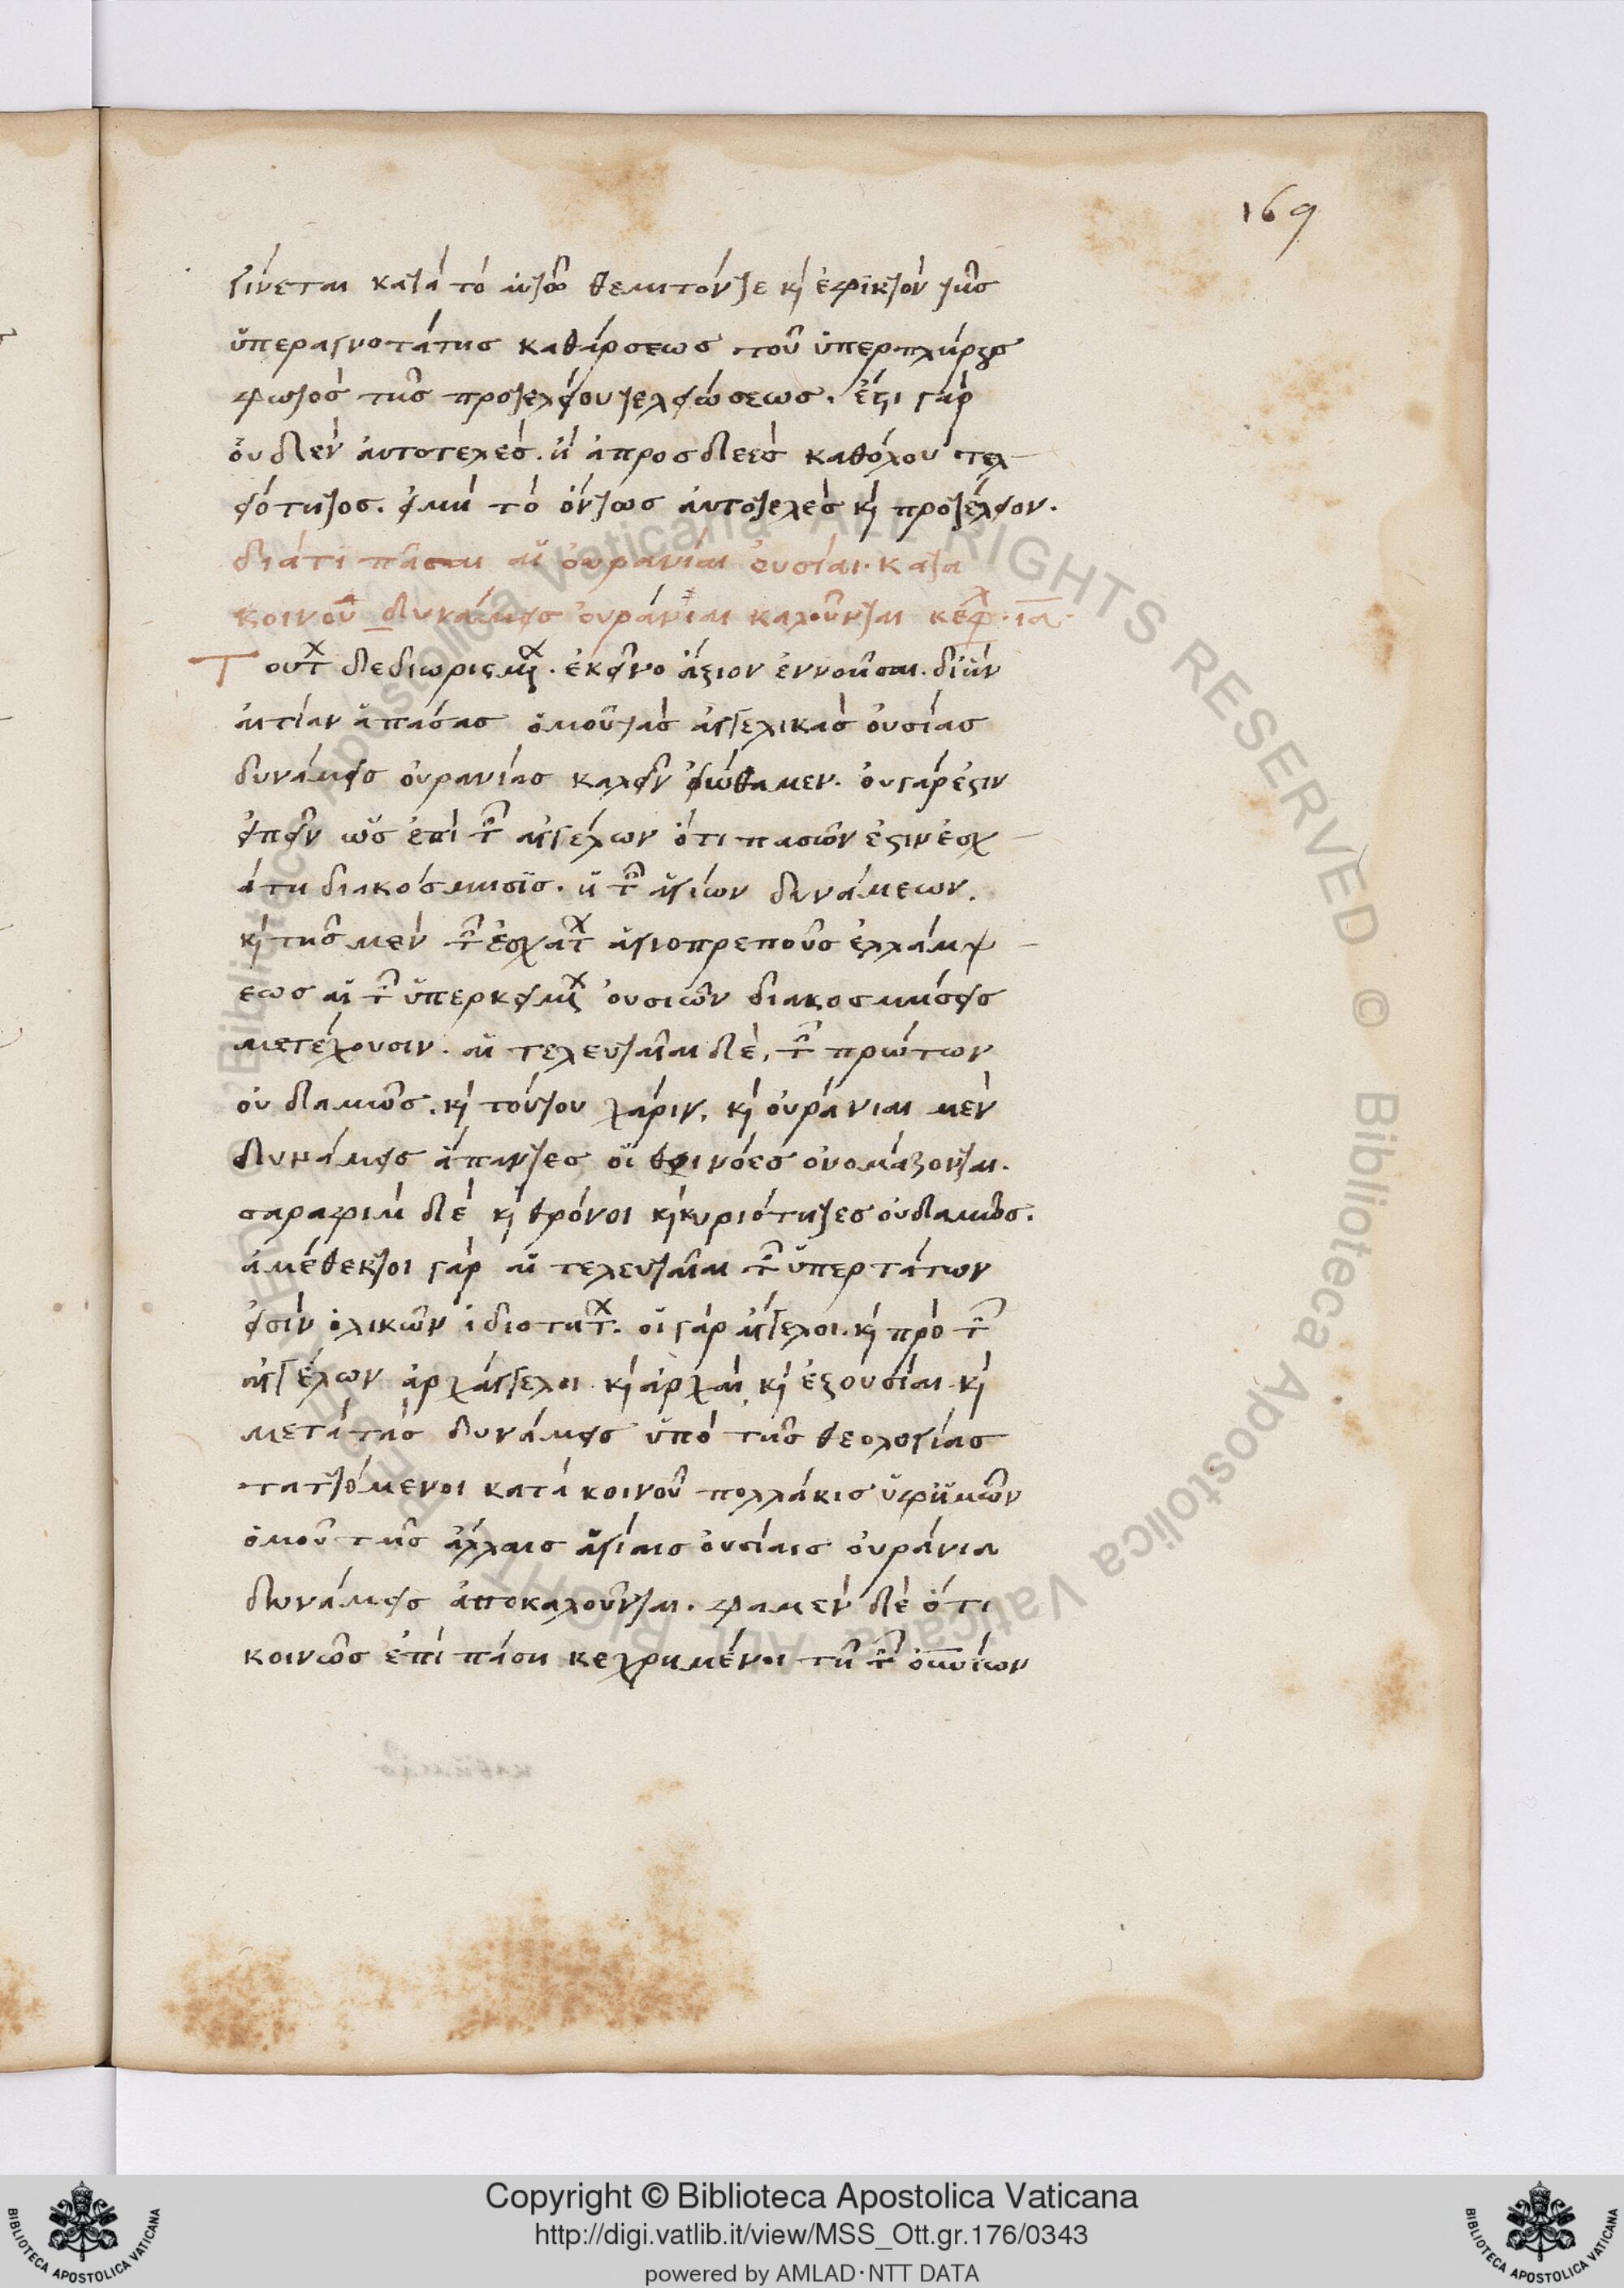 169
γίνεται κατὰ τὸ αὐτῶ θεμιτόν τε κὶ ἐφικτὸν τῆς
ὑπεραγνοτάτης καθάρσεως τοῦ ὑπερπλήρους
φωτὸς τῆς προτελείου τελειώσεως. ἔστι γὰρ
οὐδὲν ἀυτοτελὲς. ἢ ἀπροσδεὲς καθόλου τελ
ειότητος. εἰμὴ τὸ ὄντως ἀυτοτελὲς κὶ προτέλειον.
διάτί πᾶσαι αἱ ὀυρανίαι ὀυσίαι. κατα
κοινοῦ δυνάμεις ὀυράνιαι καλοῦνται κεφ. ια.
Τουτ δεδιωρισμ. ἐκεῖνο ἄξιον ἐννοῆσαι. δι ἣν
ἀιτίαν ἁπάσας ὁμοῦ τὰς ἀγγελικὰς ὀυσίας
δυνάμεις ὀυρανίας καλεῖν εἰώθαμεν. ὀυ γάρ ἐστιν
εἰπεῖν ὡς ἐπὶ τ ἀγγέλων ὅτι πασῶν ἐστιν ἐσχ
άτη διακόσμησις. ἡ τ ἁγίων δυνάμεων.
κὶ τῆς μὲν τ ἐσχατ ἁγιοπρεποῦς ἐλλάμψ
εως αἱ τ ὑπερκειμ ὀυσιῶν διακοσμήσεις
μετέχουσιν. αἱ τελευταῖαι δὲ, τ πρώτων
ὀυδαμῶς. κὶ τούτου χάριν, κὶ ὀυράνιαι μὲν
δυνάμεις ἅπαντες οἱ θεῖοι νόες ὀνομάζονται.
σαραφιμ δὲ κὶ θρόνοι κὶ κυριότητες ὀυδαμῶς.
ἀμέθεκτοι γὰρ αἱ τελευταῖαι τ ὑπερτάτων
εἰσὶν ὁλικῶν ἰδιοτητ. οἱ γὰρ ἄγγελοι. κὶ πρὸ τ
ἀγγέλων ἀρχάγγελοι κὶ ἀρχαὶ κὶ ἐξουσίαι. κὶ
μετὰ τὰς δυνάμεις ὑπὸ τῆς θεολογίας
ταττόμενοι κατὰ κοινοῦ πολλάκις ὑφ ἡμῶν
ὁμοῦ τῆς ἄλλαις ἁγίαις ὀυσίαις ὀυράνια
δυνάμεις ἀποκαλοῦνται. φαμὲν δὲ ὅτι
κοινῶς ἐπὶ πάση κεχρημένοι τῆ τ ὀυνίων
Copyright © Biblioteca Apostolica Vaticana
http://digi.vatlib.it/view/MSS_Ott.gr.176/0343
powered by AMLAD·NTT DATA